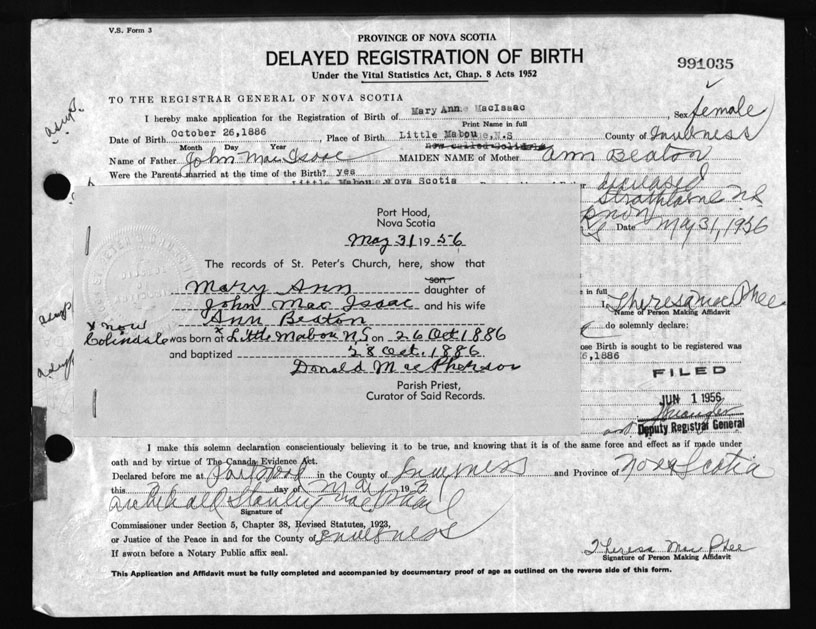 V.S. Form 3
PROVINCE OF NOVA SCOTIA
DELAYED REGISTRATION OF BIRTH
Under the Vital Statistics Act, Chap. 8 Acts 1952
991035
TO THE REGISTRAR GENERAL OF NOVA SCOTIA
I hereby make application for the Registration of Birth of Mary Anne MacIsaac Sex female
Print Name in full
Date of Birth October 26,1886 Place of Birth Little Mabou N.S County of Inverness
Month Day Year now called Colindale
Name of Father John MacIsaac MAIDEN NAME of Mother Ann Beaton
Were the Parents married at the time of the Birth? yes deceased
Little Mabou Nova Scotia Strathlorne N.S
Date May 31, 1956
Port Hood,
Nova Scotia
May 31 1956
The records of St. Peter's Church, here, show that
son
Mary Ann daughter of
John Mac Isaac and his wife
Ann Beaton
x now
Colindale was born at x Little Mabou N.S on 26 Oct. 1886
and baptized 28 Oct. 1886
Donald MacPherson
Parish Priest,
Curator of Said Records.
in full
I, Theresa MacPhee
Name of Person Making Affidavit
do solemnly declare:
ose Birth is sought to be registered was
6,1886
FILED
JUN 1 1956
Deputy Registrar General
I make this solemn declaration conscientiously believing it to be true, and knowing that it is of the same force and effect as if made under
oath and by virtue of The Canada Evidence Act.
Declared before me at Port Hood in the County of Inverness and Province of Nova Scotia
this day of May 19
Archibald Stanley MacPhail
Signature of
Commissioner under Section 5, Chapter 38, Revised Statutes, 1923,
or Justice of the Peace in and for the County of Inverness
If sworn before a Notary Public affix seal.
Theresa MacPhee
Signature of Person Making Affidavit
This Application and Affidavit must be fully completed and accompanied by documentary proof of age as outlined on the reverse side of this form.